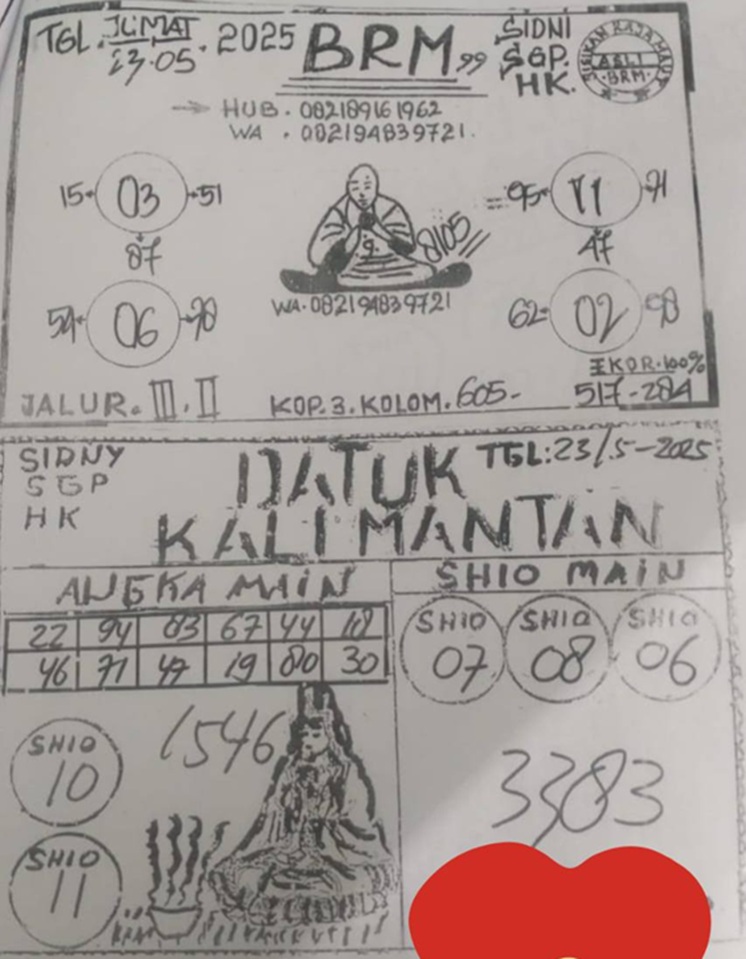 TGL. JUMAT
23.05. 2025
BRM"
SIDNI
SGP.
HK.
ASLI
BRM
HUB. 082189161962
WA. 082194839721.
15 03 51
87
95 11 71
47
8105
WA. 082194839721
06
62 02 98
EKOR. 100%
517-284
JALUR. III. II
KOP. 3. KOLOM. 605-
SIDNY
SGP
HK
DATUK
KALIMANTAN
TGL: 23/5-2025
ANGKA MAIN
22 94 83 67 44
46 71 47 19 80 30
SHIO MAIN
SHIO 07
SHIO 08
SHIO 06
SHIO 10
1546
SHIO 11
3383